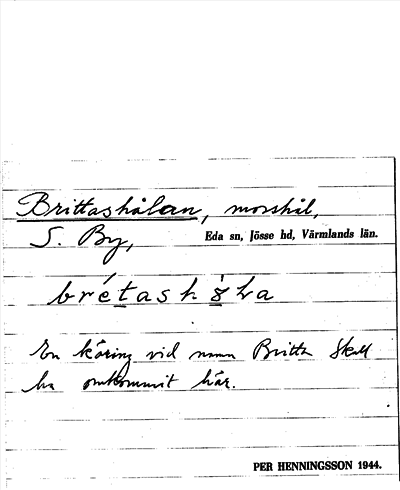 Brittashålan, morshål,
S. By, Eda sn, Jösse hd, Värmlands län.
En käring vid namn Britta skall
ha omkommit här.
PER HENNINGSSON 1944.